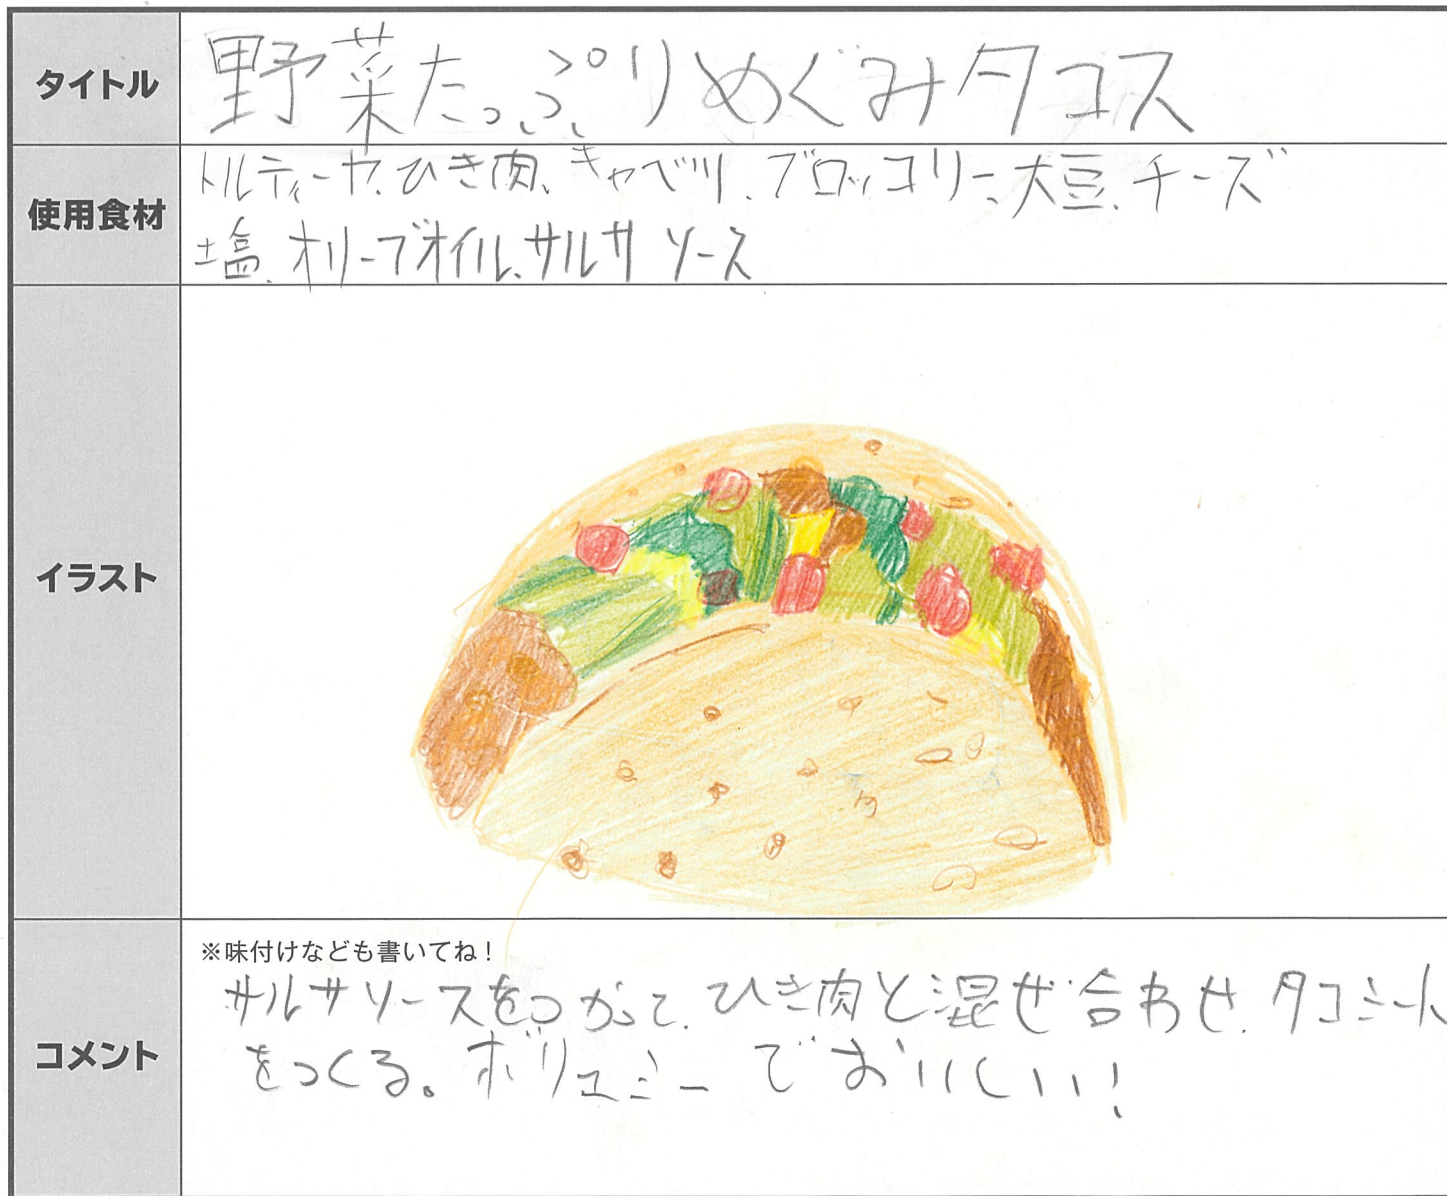 タイトル
野菜たっぷりめぐみタコス
使用食材
トルティーヤ、ひき肉、キャベツ、ブロッコリー、大豆、チーズ
塩、オリーブオイル、サルサソース
イラスト
コメント
※味付けなども書いてね!
サルサソースをつかって、ひき肉と混ぜ合わせ、タコミート
をつくる。ボリュミーでおいしい!